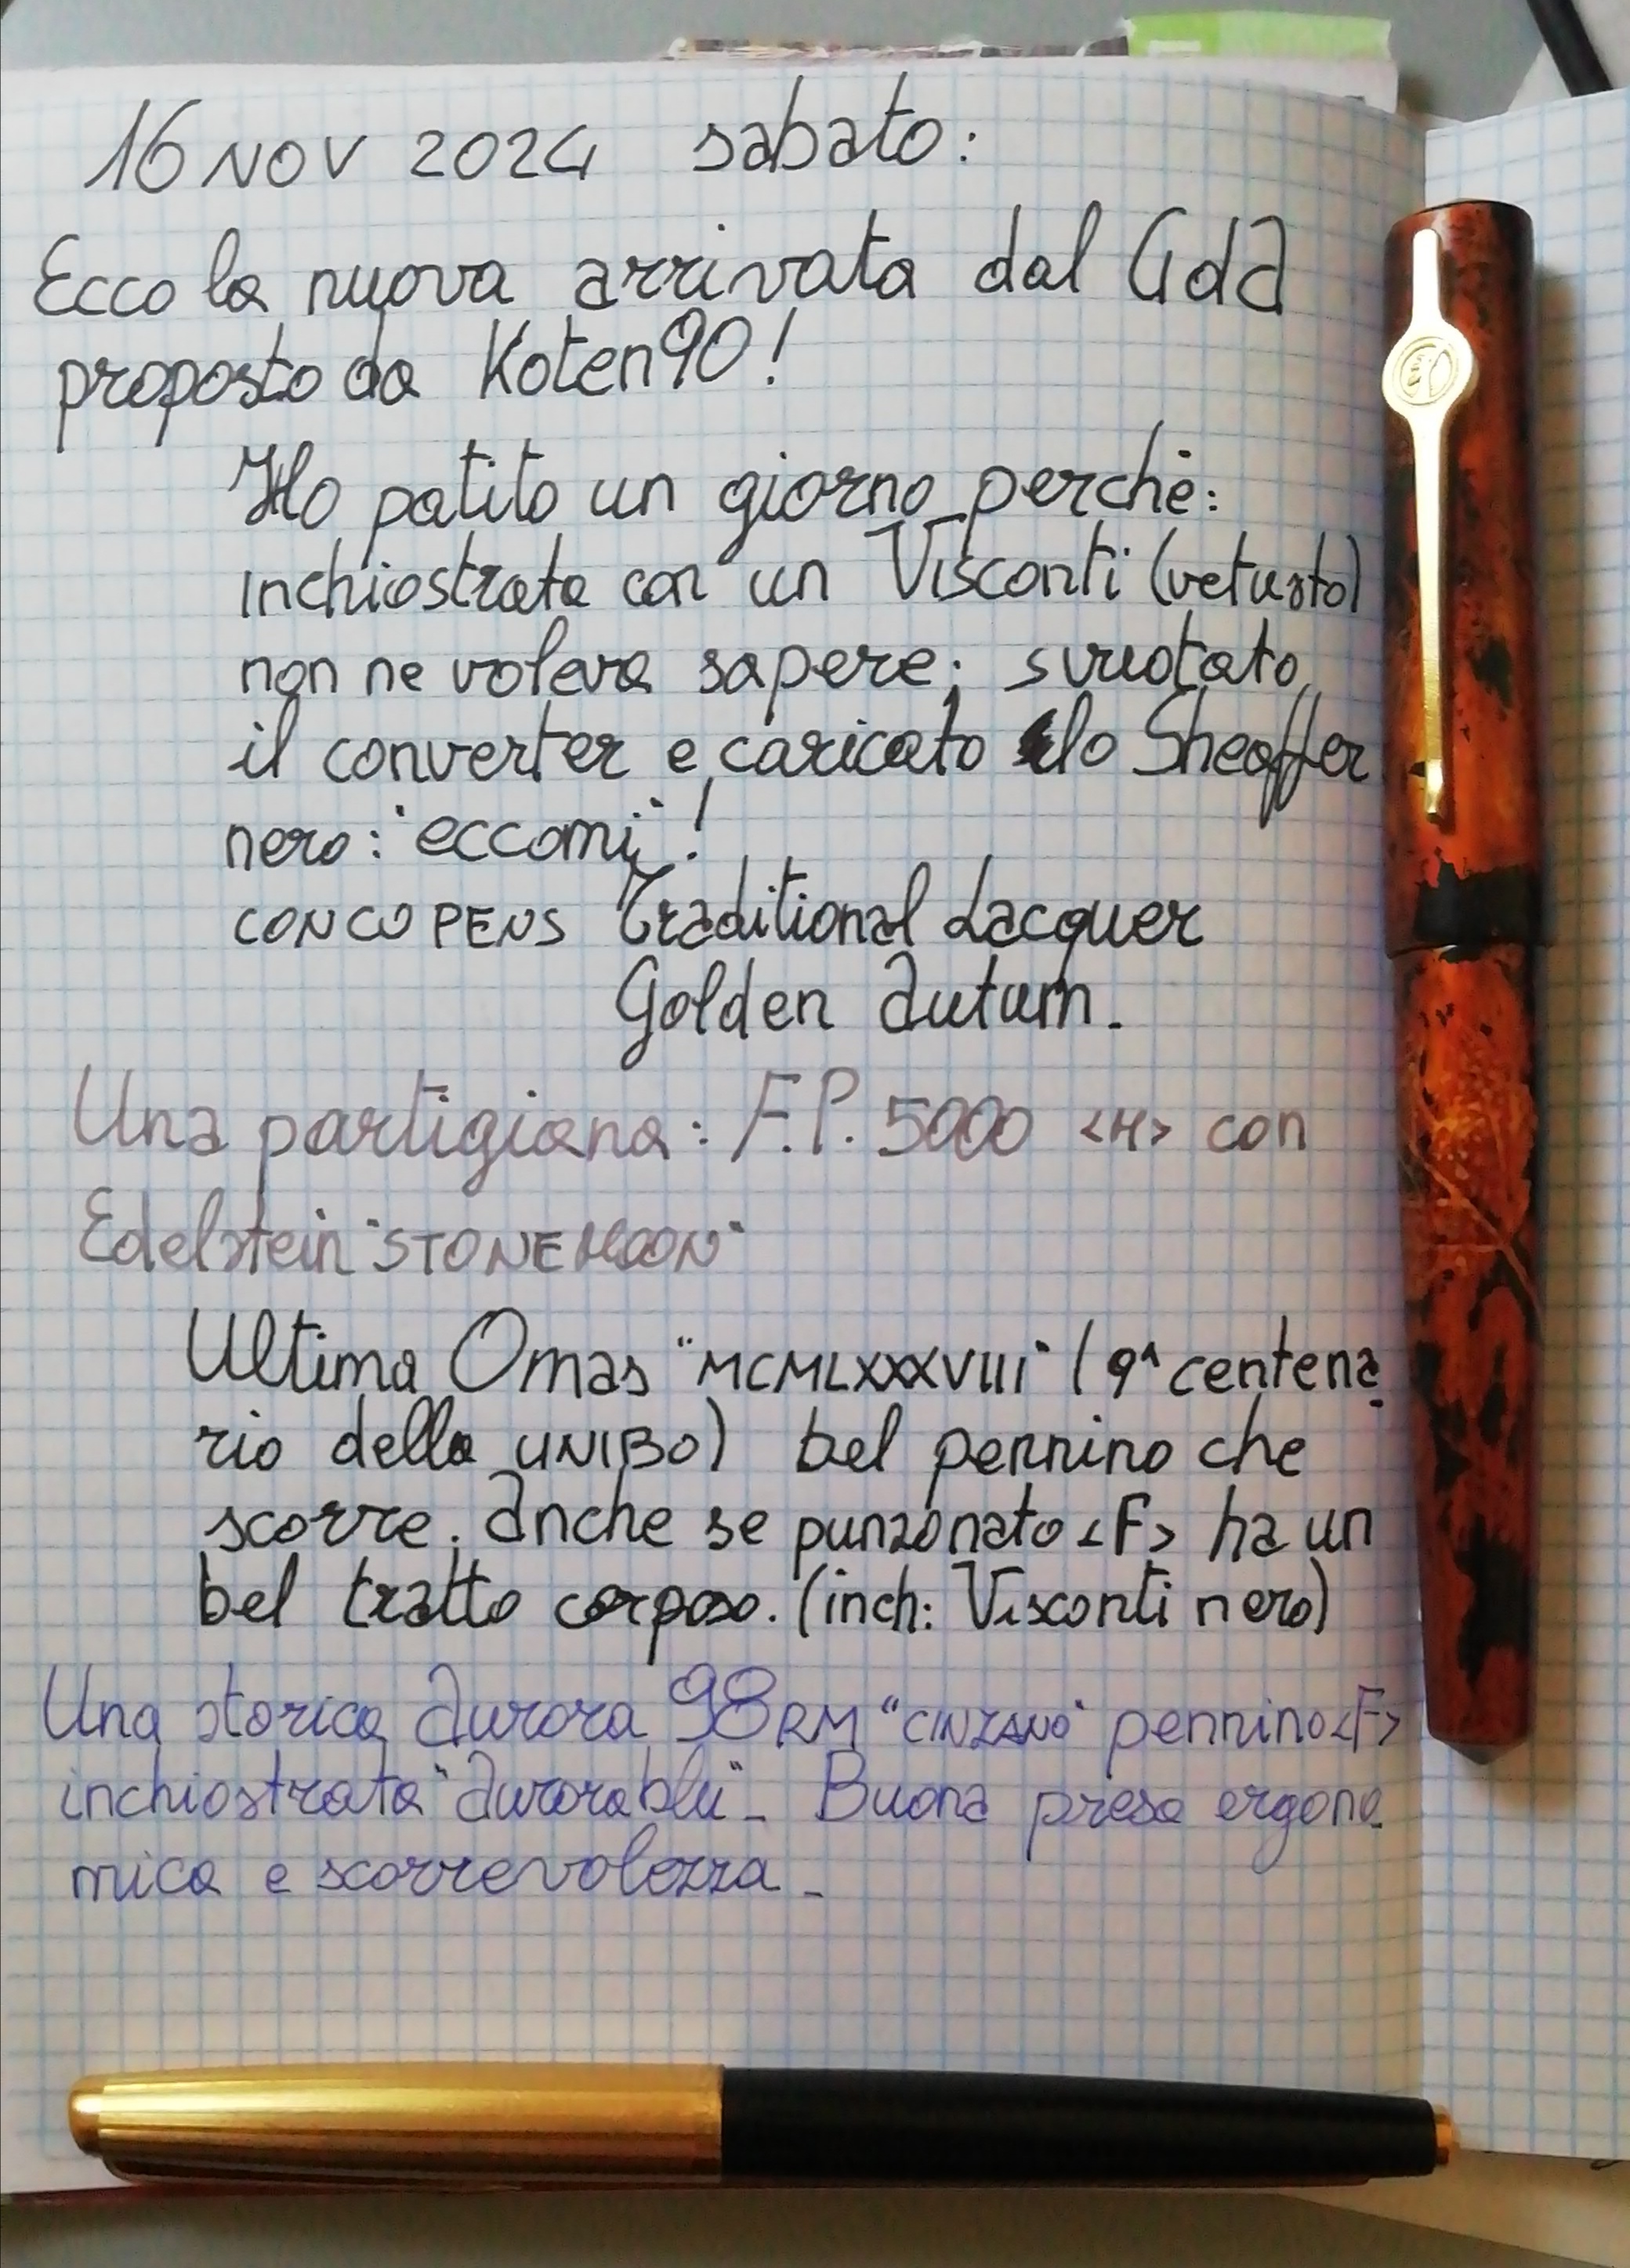 16 NOV 2024 sabato:
Ecco la nuova arrivata dal GdA
proposto da Koten90!
Ho patito un giorno perchè:
inchiostrata con un Visconti (vetusto)
non ne voleva sapere; svuotato
il converter e caricato lo Sheaffer
nero: "eccomi"!
CONCO PENS Traditional Lacquer
Golden Autum.
Una partigiana: F.P. 5000 <M> con
Edelstein "STONEMOON"
Ultima Omas "MCMLXXXVIII" (9ª centena
rio della UNIBO) bel pennino che
scorre. Anche se punzonato <F> ha un
bel tratto corposo. (inch: Visconti nero)
Una storica Aurora 98RM "CINZANO" pennino <F>
inchiostrata "Aurorablu". Buona presa ergono
mica e scorrevolezza.